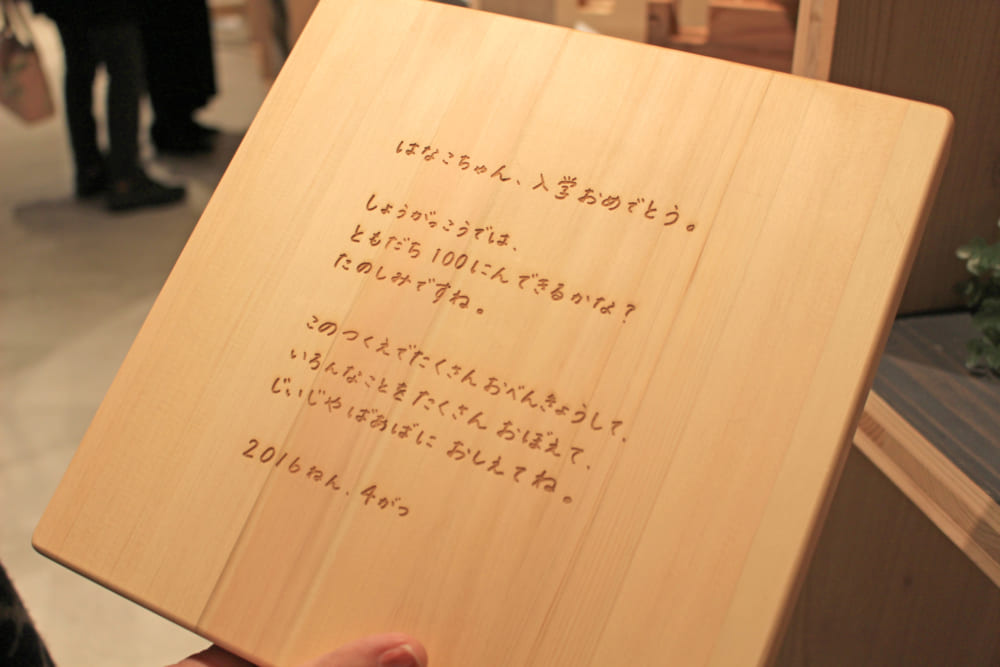 はなこちゃん、入学おめでとう。
しょうがっこうでは、
ともだち100にんできるかな？
たのしみですね。
このつくえでたくさんおべんきょうして、
いろんなことをたくさんおぼえて、
じいじやばあばにおしえてね。
2016ねん、4がつ